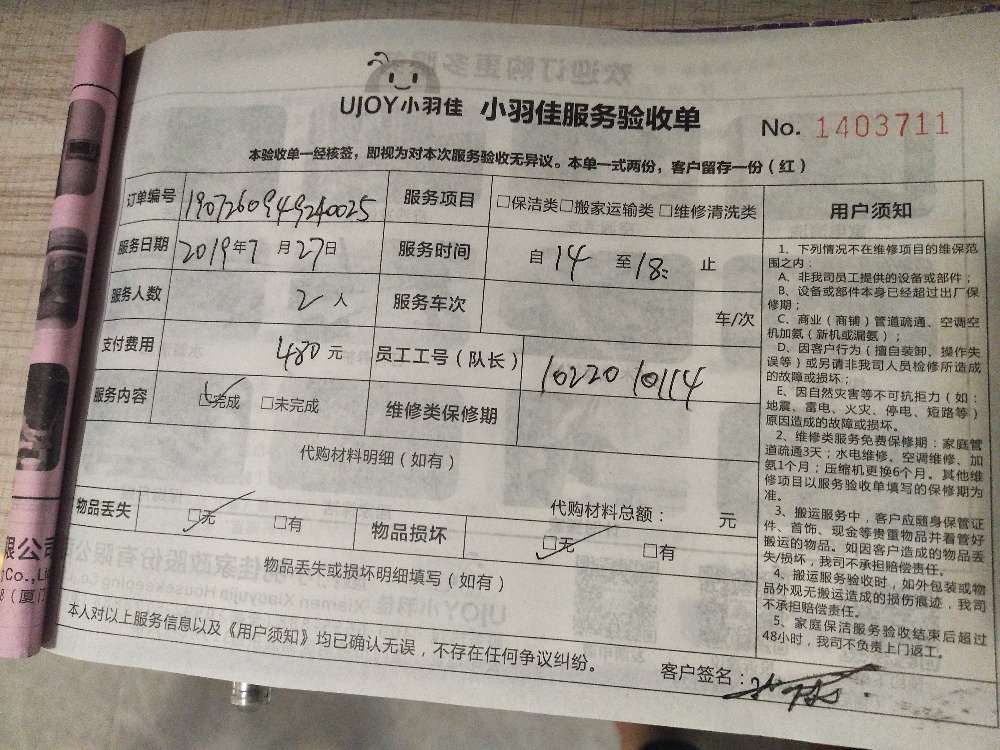 UJOY小羽佳 小羽佳服务验收单 No. 1403711
本验收单一经核签，即视为对本次服务验收无异议。本单一式两份，客户留存一份（红）
订单编号 1907260949240025 服务项目 □保洁类□搬家运输类□维修清洗类
服务日期 2019年7月27日 服务时间 自14至18:止
服务人数 2人 服务车次 车/次
支付费用 480元 员工工号（队长） 10220 10114
服务内容 □完成 □未完成 维修类保修期
代购材料明细（如有）
代购材料总额： 元
物品丢失 □无 □有 物品损坏 □无 □有
物品丢失或损坏明细填写（如有）
本人对以上服务信息以及《用户须知》均已确认无误，不存在任何争议纠纷。
客户签名：
用户须知
1、下列情况不在维修项目的维保范
围之内：
A、非我司员工提供的设备或部件；
B、设备或部件本身已经超过出厂保
修期；
C、商业（商铺）管道疏通、空调空
机加氨（新机或漏氨）；
D、因客户行为（擅自装卸、操作失
误等）或另请非我司人员检修所造成
的故障或损坏；
E、因自然灾害等不可抗拒力（如：
地震、雷电、火灾、停电、短路等）
原因造成的故障或损坏。
2、维修类服务免费保修期：家庭管
道疏通3天；水电维修。空调维修、加
氨1个月；压缩机更换6个月。其他维
修项目以服务验收单填写的保修期为
准。
3、搬运服务中，客户应随身保管证
件、首饰、现金等贵重物品并看管好
搬运的物品。如因客户造成的物品丢
失/损坏，我司不承担赔偿责任。
4、搬运服务验收时，如外包装或物
品外观无搬运造成的损伤痕迹，我司
不承担赔偿责任。
5、家庭保洁服务验收结束后超过
48小时，我司不负责上门返工。
限公司
Co.,L